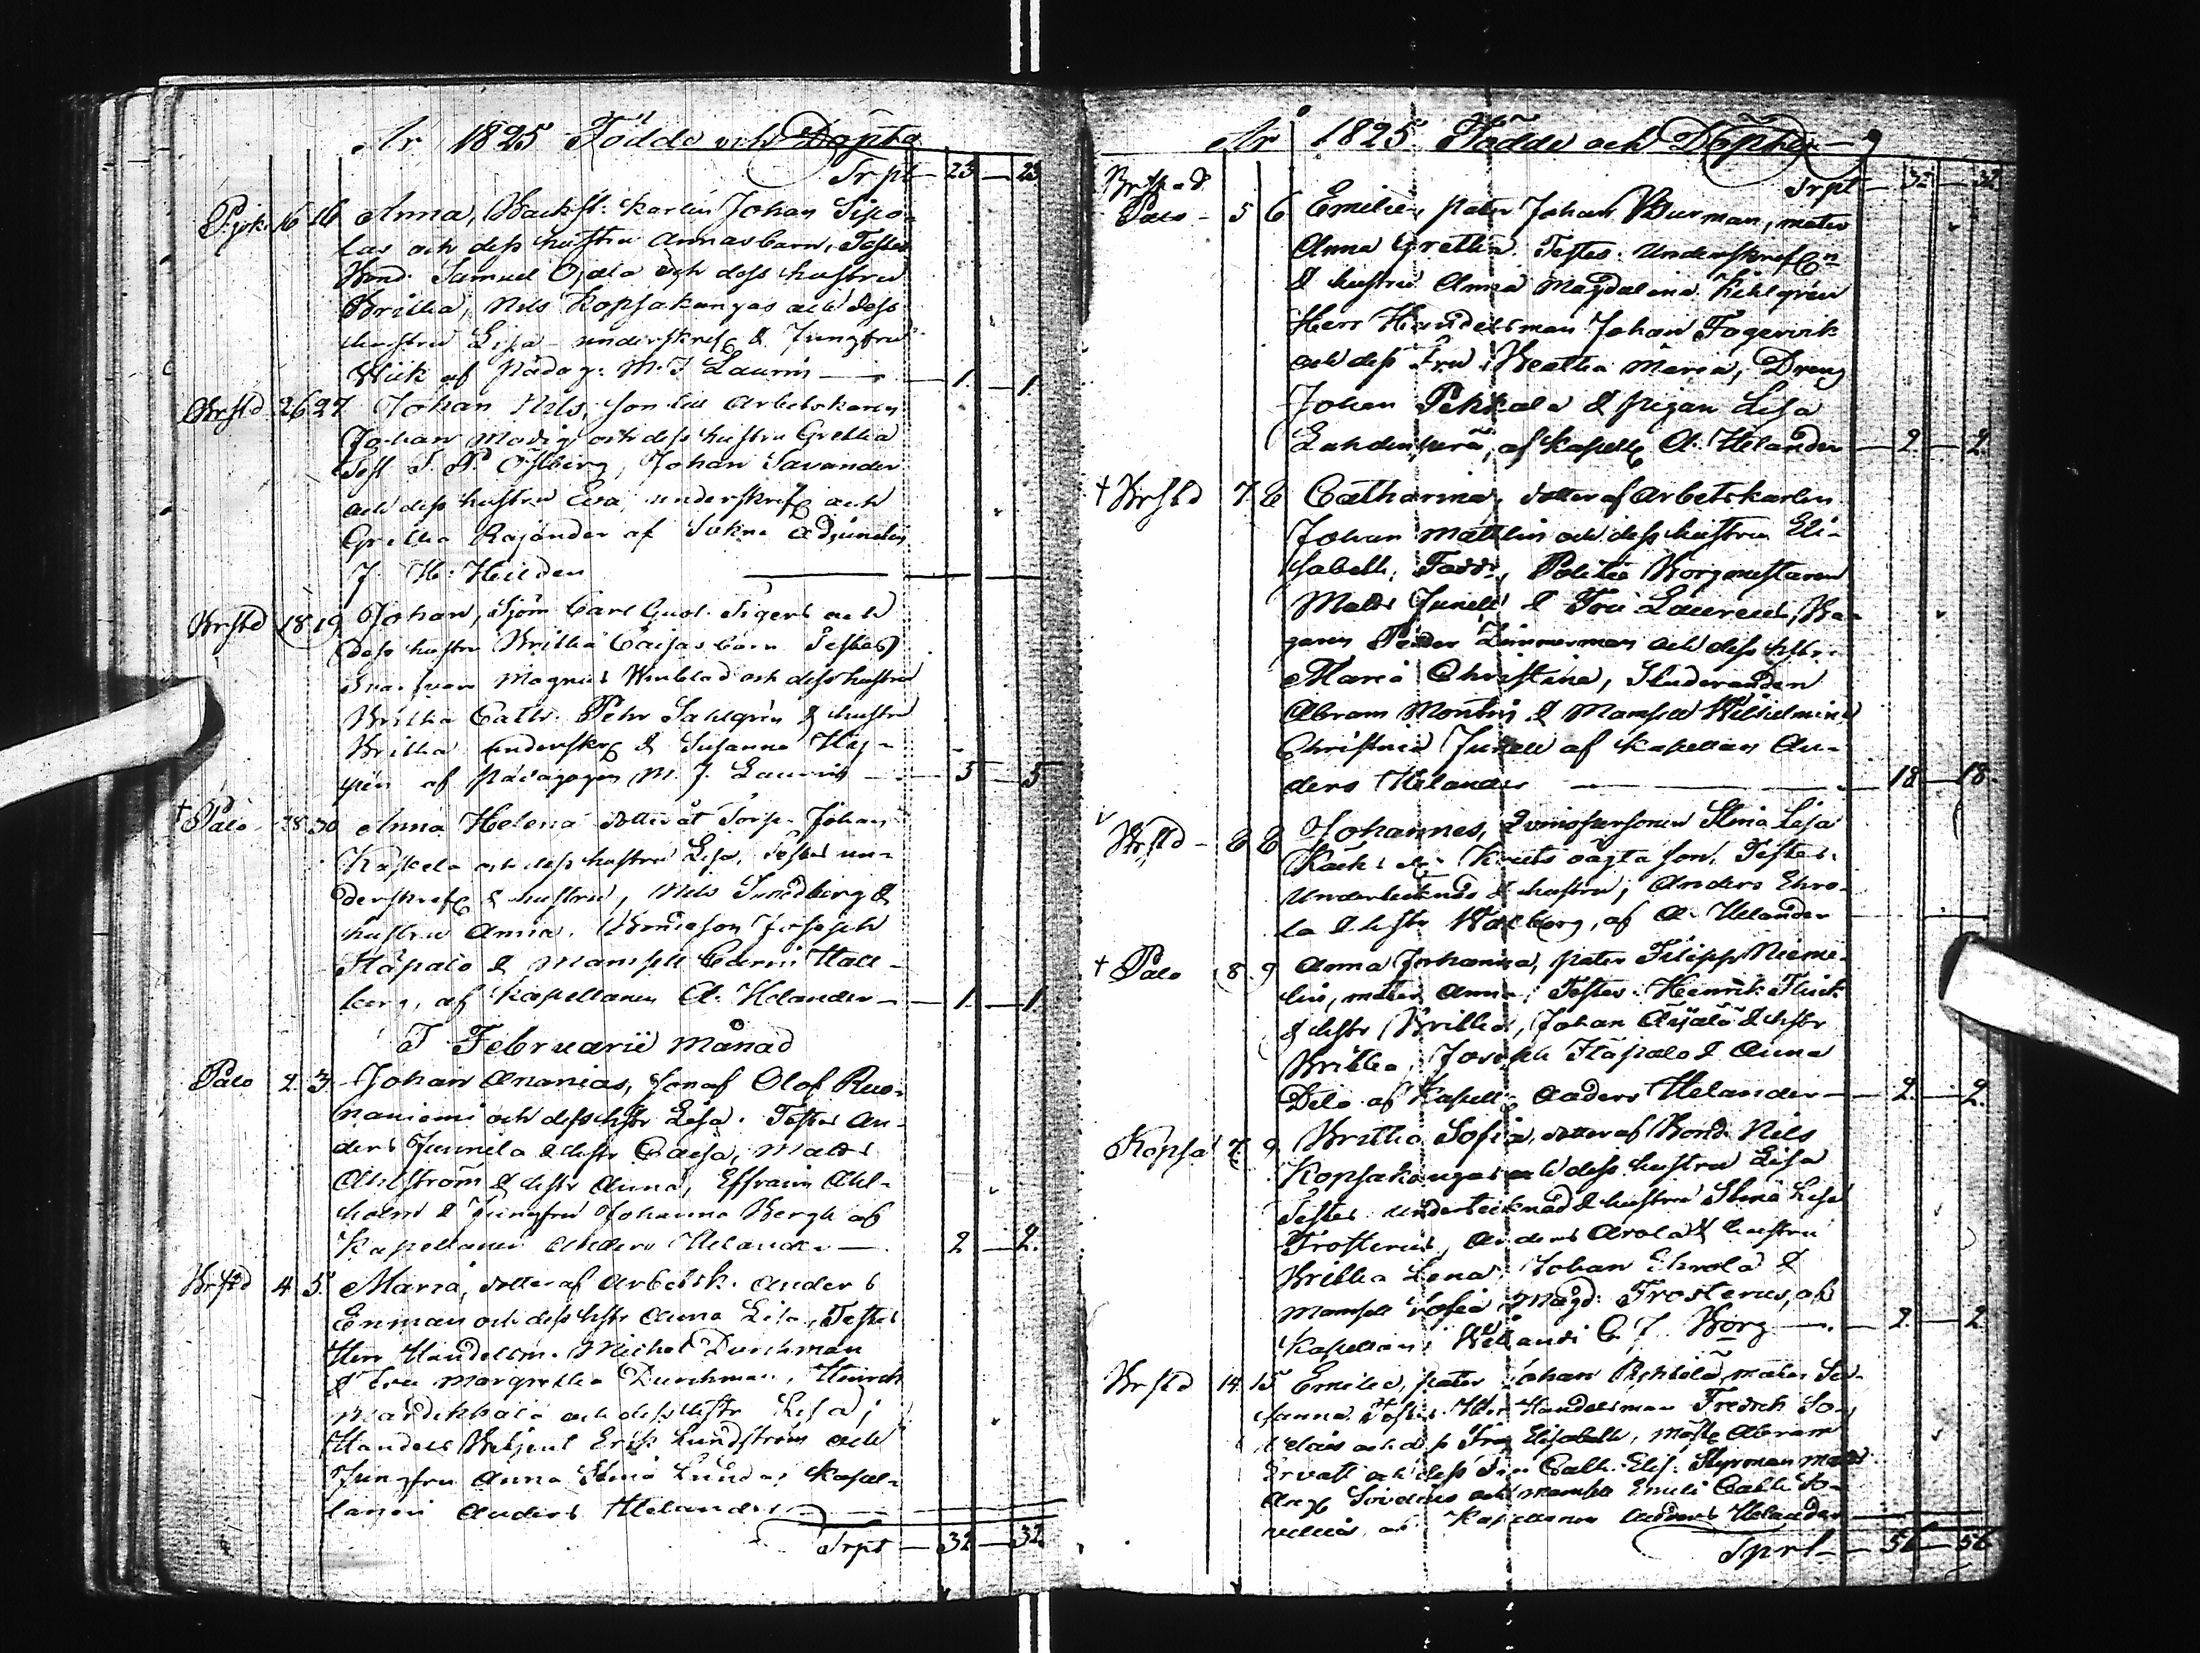 År 1825 Födde och Döpta
Trpt 23 23
Pyhk. 16 16 Anna, Backst: karlen Johan Sipo-
las och dess hustru Annas barn, Testes
Bond. Samuel Ojala och dess hustru
Britha, Nils Kopsakangas och dess
hustru Lisa underskref. & Jungfru
Wiik af Pädag: M. J. Laurin 1. 1.
Brstd 26 27 Johan Nils, son till Arbetskarlen
Johan Modig och dess hustru Gretha
Test Östberg, Johan Savander
och dess hustru Eva, underskref. och
Gretha Rajander af Sokne adjuncten
J. H. Heiden
Brstd 18 19 Johan, Sjöm Carl Gust. Sigers och
dess hustru Britha Caisas barn Testes
Magnus Winblad och dess hustru
Britha Cath. Pehr Sahlgrén & hustru
Britha underskr. & Susanna Hig-
af pädagogen M. J. Laurin 5 5
† Palo 28 30 Anna Helena dotter åt Torp. Johan
Kaskela och dess hustru Lisa, Testes un-
derskref. & hustru, Nils Sundberg &
hustru Anna. Bondeson Joseph
Ståpalo & Mamsell Carin Hall-
berg, af Kapellanen A. Helander 1. 1.
I Februarii månad
Palo 2. 3. Johan Ananias, son af Olof Ruo-
naniemi och dess hstr Lisa. Testes An-
ders Junnila & hstr Caisa, Matts
Ahlström & hstr Anna, Effraim Ahl-
holm & Jungfru Johanna Bergh af
Kapellanen Anders Helander 2 2.
Brstd 4 5. Maria, dotter af Arbetsk. Anders
Enman och dess hstr Anna Lisa, Testes
Herr Handelsm. Michel Durchman
& Fru Margretha Durchman, Hinrich
och dess hstr Lisa;
Handels Betjent Erik Lundström och
Jungfru Anna Stina Lunda; Kapel-
lanen Anders Helander
Trpt 32 32.
År 1825 Födde och Döpta
Trpt 32 32
Brstad.
Palo 5 6 Emilie, pater Johan Burman, mater
Anna Gretha. Testes: Underskrefen
& hustru Anna Magdalena Kihlgrén
Herr Handelsman Johan Fogervik
och dess Fru Beatha Maria, Dreng
Johan Pekkala & pigan Lisa
Lahdenperä, af Kapell. A. Helander 2. 2.
† Brstd 7. 8 Catharina, dotter af Arbetskarlen
Johan Matthin och dess hustru Eli-
sabeth; Fadd:, Politie Borgmestaren
Matts Junell & Fru Laurens, Ba-
garen Peder Zimmerman och dess hstr.
Maria Christina, Studeranden
Abram Montin & Mamsell Wilhelmina
Christina Junell af Kapellan An-
ders Helander 18 18.
Brstd 8 8 Johannes, Qvinspersonen Stina Lisa
oägta son. Testes:
Undertecknade & hustru; Anders Ehro-
la & hstr Walborg, af A. Helander
† Palo 8. 9 Anna Johanna, pater Filipp Nieme-
lin, mater Anna; Testes: Henrik Flink
& hstr Britha, Johan & hstr
Britha, Joseph Ståpalo & Anna
Dito af Kapell. Anders Helander 2. 2.
Kopsa 7. 9. Britha Sofia, dotter af Bond. Nils
Kopsakangas och dess hustru Lisa
Testes undertecknad & hustru Stina Lisa
Frosterus, Anders Arola & hustru
Britha Lena, Johan Ehrola &
Mamsell Sofia Magd: Frosterus, af
Kapellan: C. J. Borg 2. 2
Brstd 14. 15 Emilie, pater Johan Pehkola, mater Su-
sanna. Testes. Herr Handelsman Fredrik So-
velius och dess Fru Elisabeth, Abram
och dess Fru Cath. Elis. Styrman Matts
Aug. Sovelius och Mamsell Emili Cath So-
velius, af Kapellanen Anders Helander
Tprt 56 56